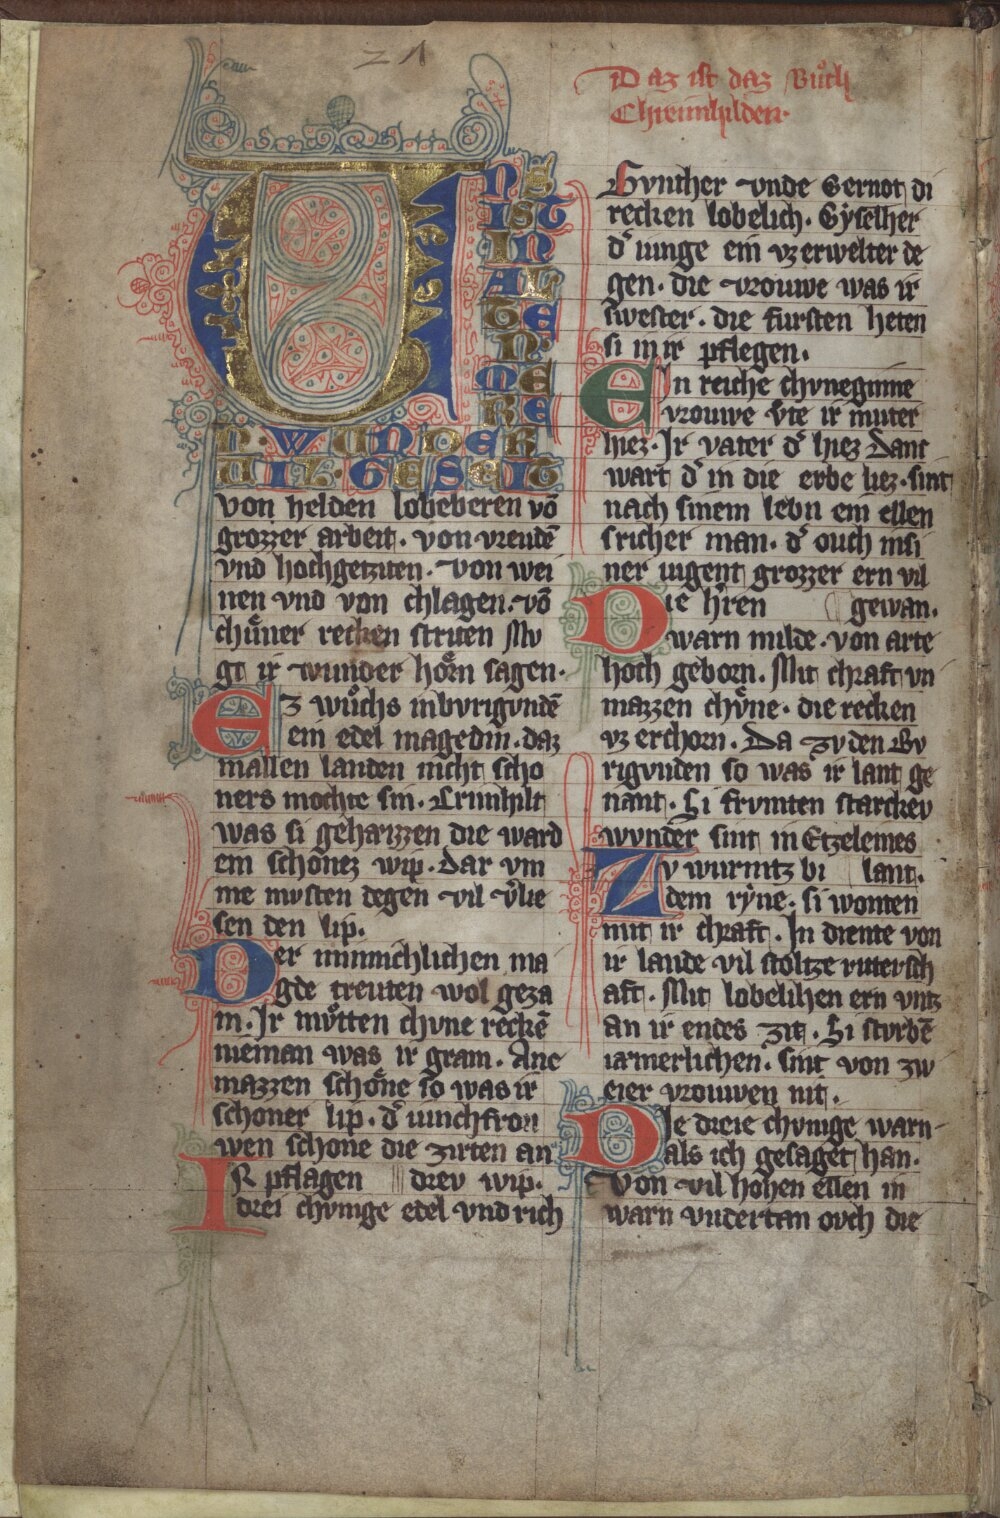 21
Daz ist daz Buͦch
Chreimhilden·
VNS
IST
IN
AL
TE
N
ME
RE
N· WUNDER
VIL· GESEIT
von helden lobeberen vō
grozzer arbeit. von vreudē
vnd hochgetziten. von wei
nen vnd von chlagen. vō
chuͤner recken striten Mv
gt ir wunder hoͤrn sagen·
Ez wuͦchs inbvrigundē
ein edel magedin. daz
inallen landen nicht scho
ners mochte sin. Crimhilt
was si geharzzen die ward
ein schonez wip. dar vm
me mvsten degen vil v̓lie
sen den lip.
Der minnichlichen ma
gde treuten wol geza
m. Ir mvͦtten chvne reckē
nieman was ir gram. Ane
mazzen schoͤne so was ir
schoner lip. d̓ iunchfrou
wen schone die zirten an
IR pflagen drev wip.
drei chvnige edel vnd rich
Gvnther vnde Gernot di
recken lobelich. Gẏselher
d̓ iunge ein vz erwelter de
gen. die vrouwe was ir
swester. die fursten heten
si in ir pflegen.
Ein reiche chvneginne
vrouwe v̊te ir muter
hiez. Ir vater d̓ hiez Danc
wart d̓ in die erbe liez. sint
nach sinem lebn ein ellen
tricher man. d̓ ouch insi
ner iugent grozzer ern vil
Die h̓ren gewan.
warn milde. von arte
hoch geborn. Mit chraft vn
mazzen chvͤne. die recken
vz erchorn. Da zv den Bv
rigvnden so was ir lant ge
nant. Si frvmten starckev
wvnder sint in Etzelemes
Zv wurmtz bi lant.
dem rẏne. si wonten
mit ir chraft. In diente von
ir lande vil stoltze rittersch
aft. Mit lobelihen ern vntz
an ir endes zit. Si stvrbē
iamerlichen. sint von zw
eier vrouwen nit.
Die dreie chvnige warn
als ich gesaget han.
Von vil hohen ellen in
warn vndertan ovch die